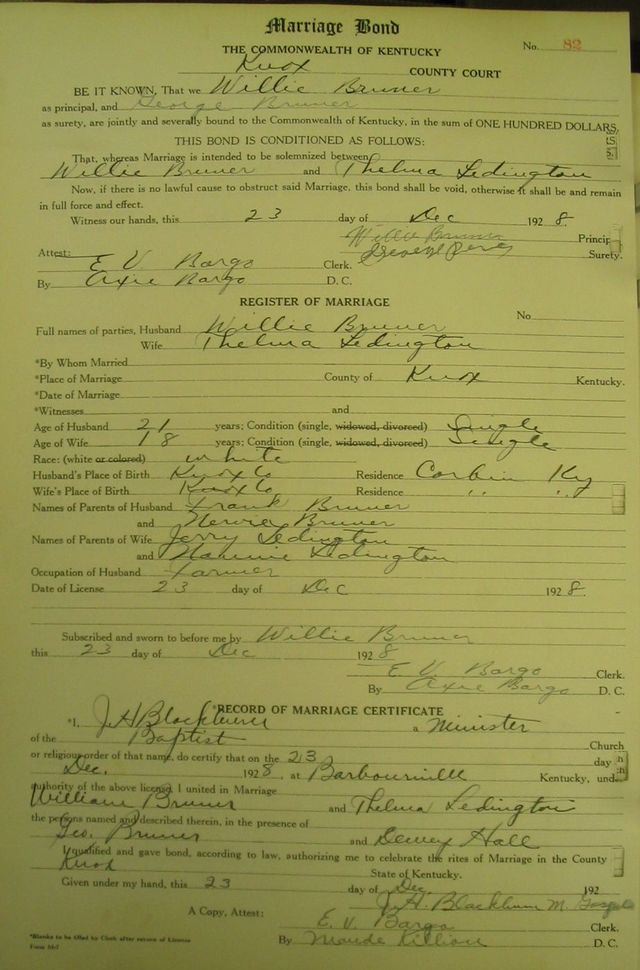 Marriage Bond
THE COMMONWEALTH OF KENTUCKY No. 82
Knox COUNTY COURT
BE IT KNOWN, That we Willie Bruner
as principal, and George Bruner
as surety, are jointly and severally bound to the Commonwealth of Kentucky, in the sum of ONE HUNDRED DOLLARS,
THIS BOND IS CONDITIONED AS FOLLOWS:
That, whereas Marriage is intended to be solemnized between
Willie Bruner and Thelma Ledington
Now, if there is no lawful cause to obstruct said Marriage, this bond shall be void, otherwise it shall be and remain
in full force and effect.
Witness our hands, this 23 day of Dec 1928.
Willie Bruner Princip
Surety.
Attest:
E. V. Bargo Clerk.
By Axie Bargo D. C.
REGISTER OF MARRIAGE
No
Full names of parties, Husband Willie Bruner
Wife Thelma Ledington
*By Whom Married
*Place of Marriage County of Knox Kentucky.
*Date of Marriage
*Witnesses and
Age of Husband 21 years; Condition (single, widowed, divorced) Single
Age of Wife 18 years; Condition (single, widowed, divorced) Single
Race: (white or colored) white
Husband's Place of Birth Knox Co Residence Corbin Ky
Wife's Place of Birth Knox Co Residence " "
Names of Parents of Husband Frank Bruner
and Bruner
Names of Parents of Wife Jerry Ledington
and Nannie Ledington
Occupation of Husband Farmer
Date of License 23 day of Dec 1928.
Subscribed and sworn to before me by Willie Bruner
this 23 day of Dec 1928
E. V. Bargo Clerk.
By Axie Bargo D. C.
*RECORD OF MARRIAGE CERTIFICATE
*I, J. H Blackburn a Minister
of the Baptist Church
or religious order of that name, do certify that on the 23 day
Dec. 1928, at Barbourville Kentucky, und
authority of the above license, I united in Marriage
William Bruner and Thelma Ledington
the persons named and described therein, in the presence of
Geo. Bruner and Dewey Hall
I qualified and gave bond, according to law, authorizing me to celebrate the rites of Marriage in the County
Knox State of Kentucky.
Given under my hand, this 23 day of Dec. 192
J. H. Blackburn M. Gospel
A Copy, Attest: E. V. Bargo Clerk.
By Maude Killion D. C.
*Blanks to be filled by Clerk after return of License